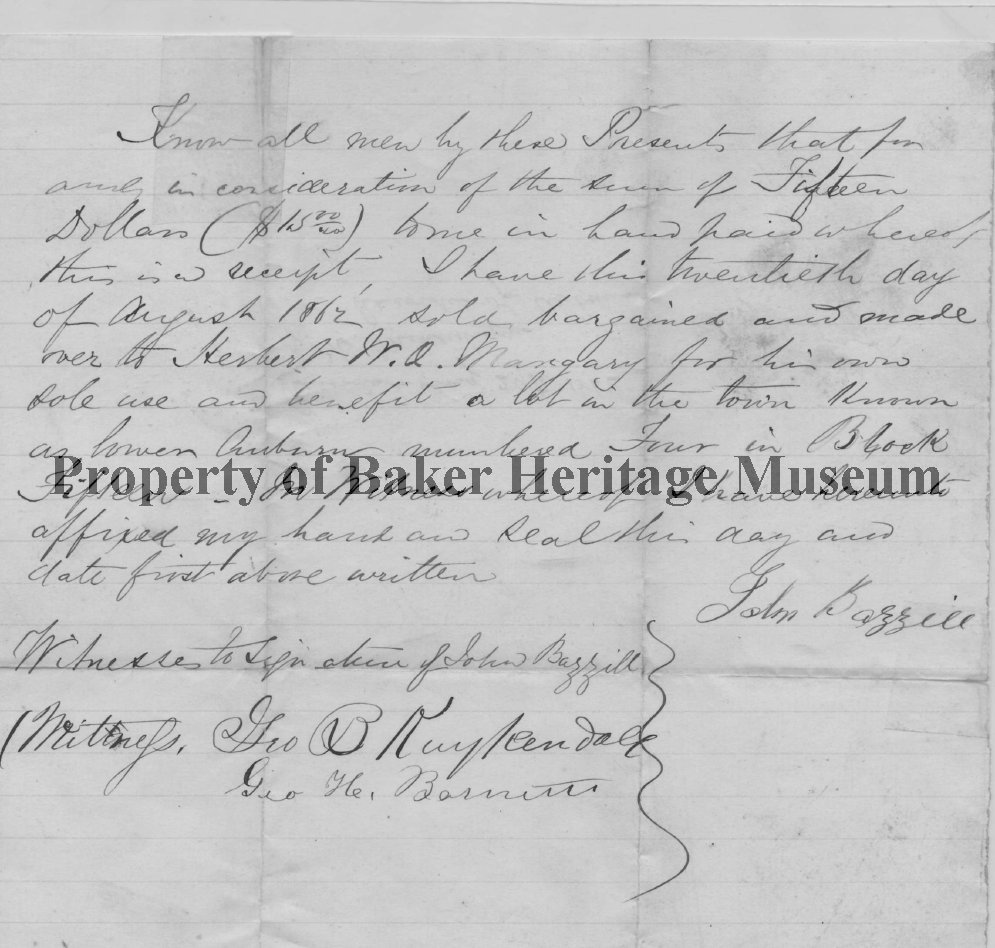 Know all men by these Presents that for
and in consideration of the sum of Fifteen
Dollars ($15 00/100) to me in hand paid whereof
this is a receipt, I have this twentieth day
of August 1862 sold, bargained and made
over to Herbert W. Q. Mangary for his own
sole use and benefit a lot in the town known
as lower Auburn numbered Four in Block
Property of Baker Heritage Museum
Fifteen - In Witness whereof I have hereunto
affixed my hand and seal this day and
date first above written
John Bazzill
Witnesses to Signature of John Bazzill
(Wittness, Geo B Kuykendall
Geo H. Barnett